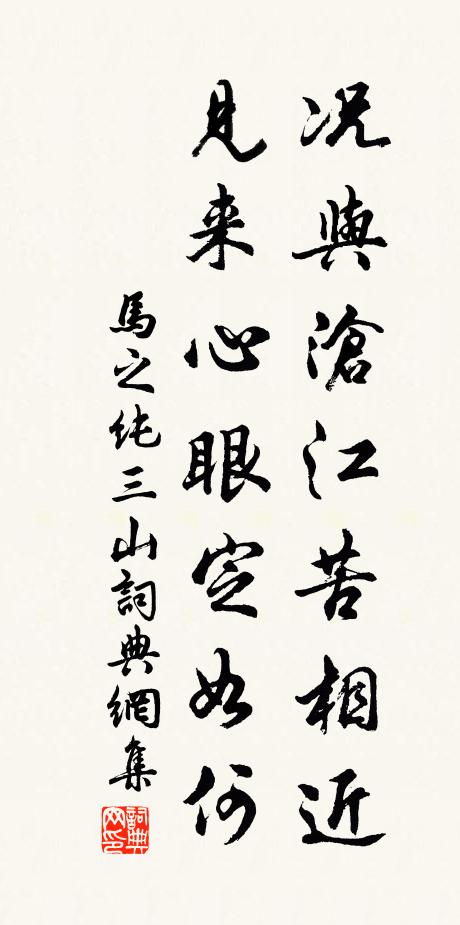 况與滄江苦相近
見来心眼定如何
馬之純三山詞典網集
詞典网印